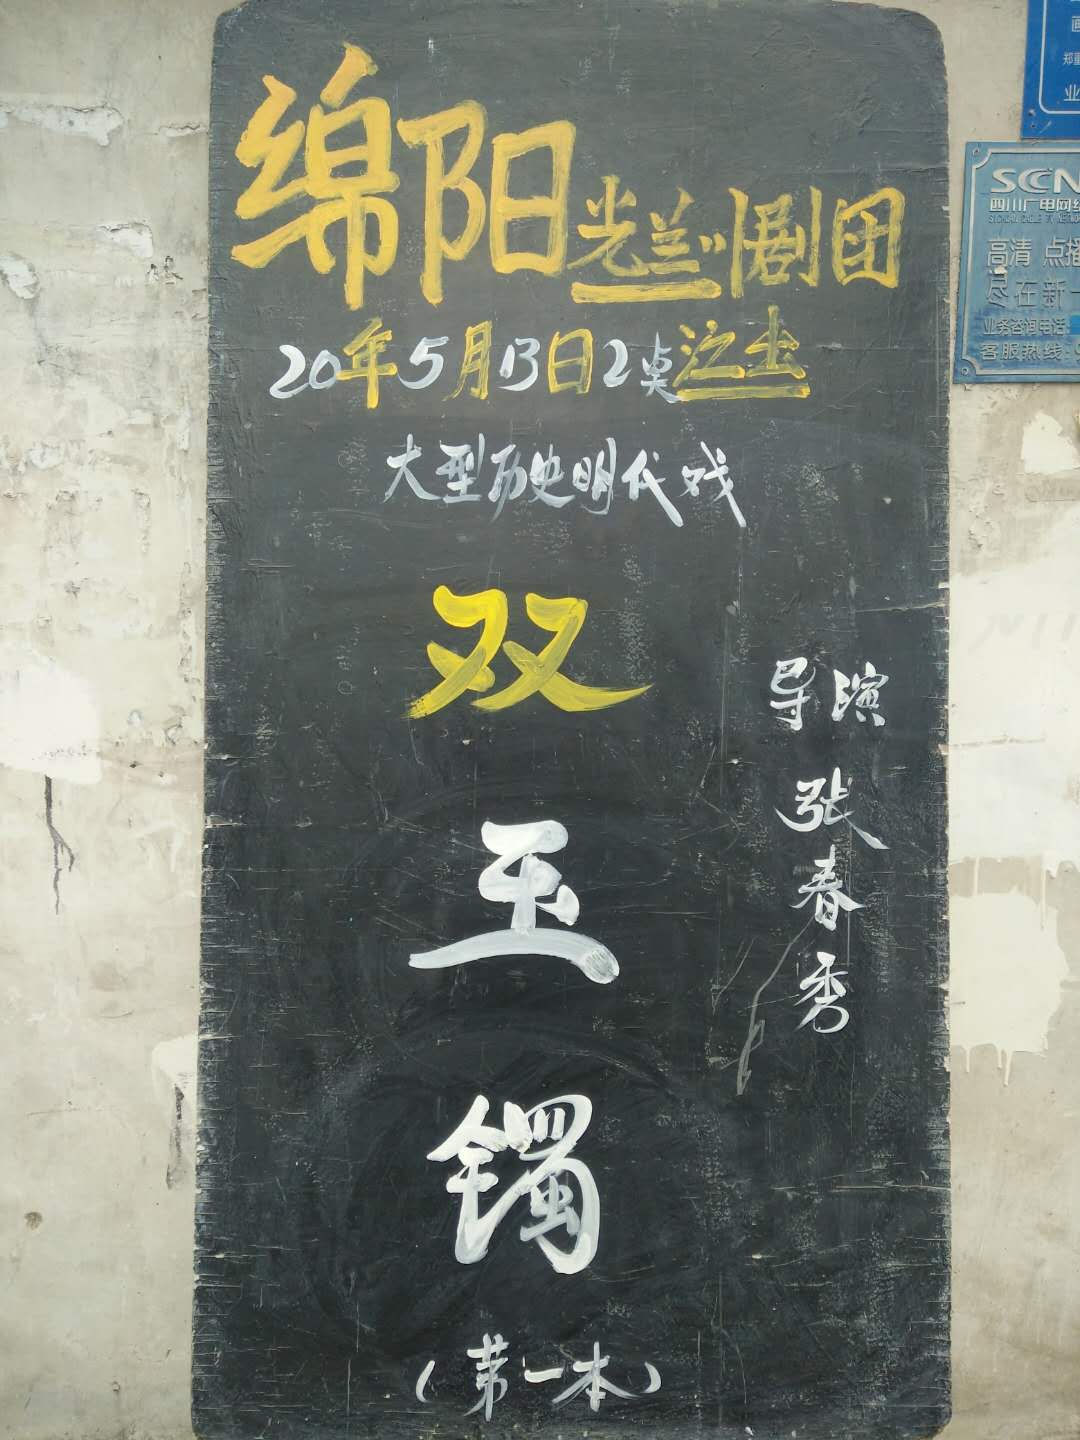 绵阳光兰川剧团
20年5月13日2奌
大型历史明代戏
双
玉
镯
(第一本)
导演
张
春
秀
SCN
四川广电网络
高清 点播
尽在新一
业务咨询电话:
客服热线: